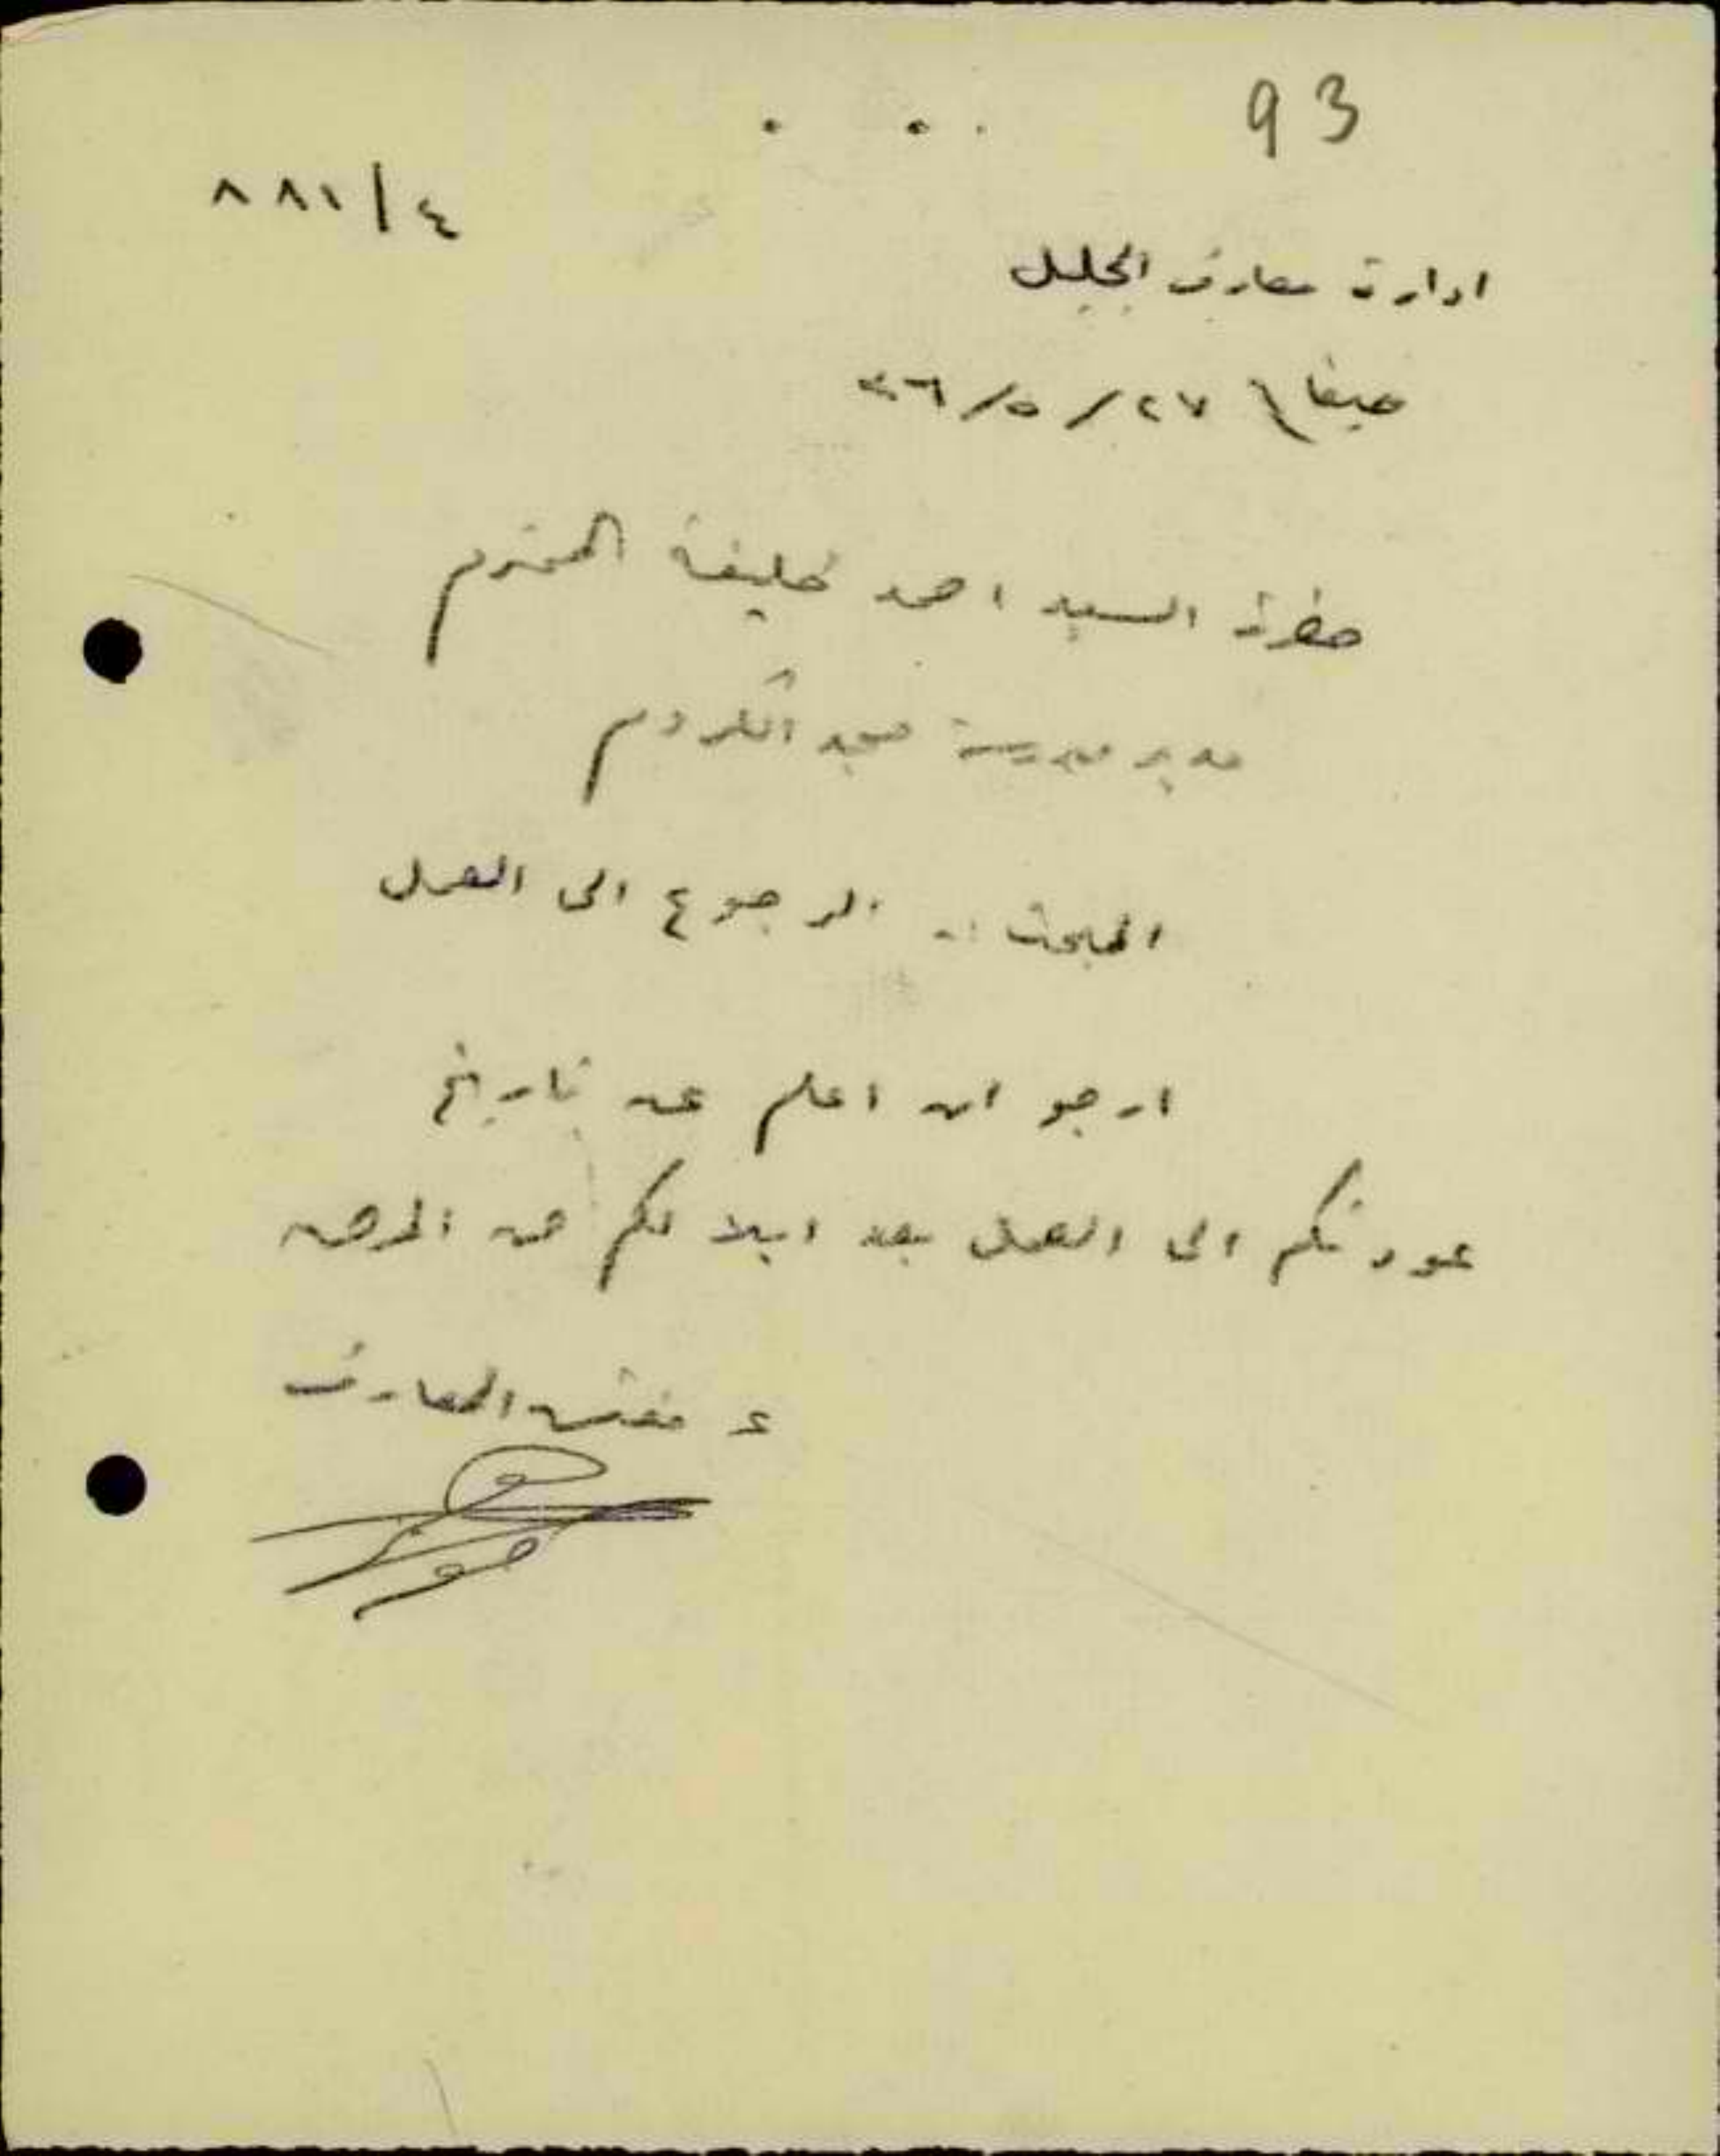 93
٨٨١/٤
ادارة معارف الجليل
حيفا ٢٧/٥/٣٦
حضرة السيد احمد خليفة المحترم
مدير مدرسة مجد الكروم
المبحث :- الرجوع الى العمل
ارجو ان اعلم عن تاريخ
عودتكم الى العمل بعد ابلالكم من المرض
ع مفتش المعارف